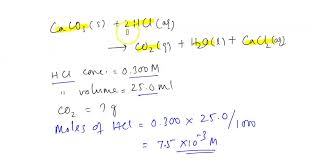 CaCO₃(s) + 2HCl(aq)
→ CO₂(g) + H₂O(l) + CaCl₂(aq)
HCl conc. = 0.300M
" volume = 25.0 ml
CO₂ = ? g
Moles of HCl = 0.300 × 25.0/1000
= 7.5 ×10⁻³ M